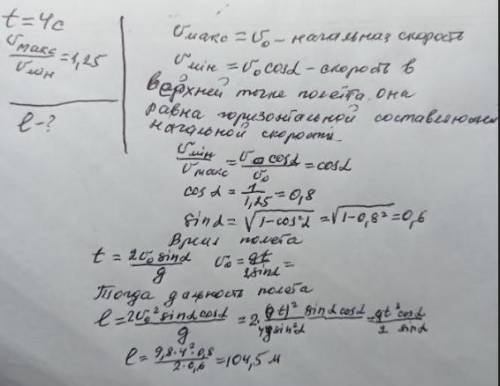 t = 4c
υмакс/υмін = 1,25
l - ?
υмакс = υ₀ - начальная скорость
υмін = υ₀ cosα - скорость в
верхней точке полета. она
равна горизонтальной составляющей
начальной скорости.
υмін/υмакс = υ₀ cosα/υ₀ = cosα
cosα = 1/1,25 = 0,8
sinα = √(1-cos²α) = √(1-0,8²) = 0,6
Время полета
t = 2υ₀ sinα/g υ₀ = gt/2sinα =
Тогда дальность полета
l = 2υ₀² sinα cosα/g = 2·(gt)² sinα cosα/4g sin²α = gt² cosα/2 sinα
l = 9,8·4²·0,8/2·0,6 = 104,5 м